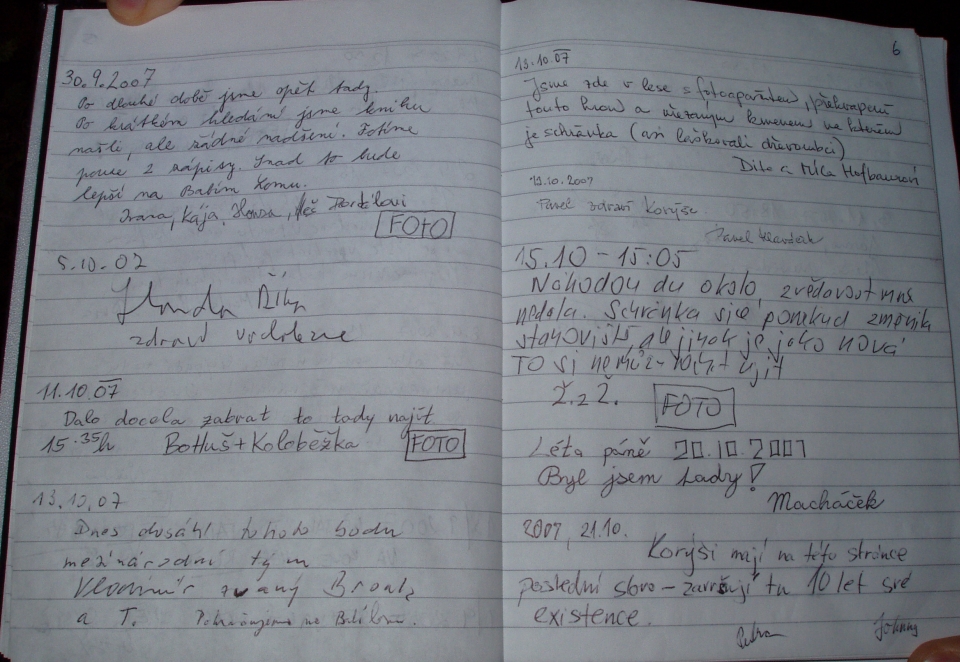 30.9.2007
Po dlouhé době jsme opět tady.
Po krátkém hledání jsme knihu
našli, ale žádné nadšení. Fotíme
pouze 2 zápisy. Snad to bude
lepší na Babím Lomu.
Ivana, Kája, Honza,
FOTO
5.10.07
zdraví vrdobne
11.10.07
Dalo docela zabrat to tady najít
15.35h Bohuš+Koloběžka FOTO
13.10.07
Dnes dosáhl tohoto bodu
mezinárodní tým
Vladimír zvaný
a T. Pokračujeme na
6
13.10.07
Jsme zde v lese s fotoaparátem, překvapeni
touto knihou a uřezaným kmenem ve kterém
je schránka (asi laškovali dřevorubci)
Dita a Míla Hofbauerovi
13.10.2007
Pavel zdraví Korýše
Pavel
15.10 - 15:05
Náhodou du okolo, zvědavost mně
nedala. Schránka sice poněkud změnila
stanoviště, ale jinak je jako nová
TO si nemůže nechat ujít
Ž. z Ž. FOTO
Léta páně 20.10.2007
Byl jsem tady!
Macháček
2007, 21.10.
Korýši mají na této stránce
poslední slovo - završují tu 10 let své
existence.
Petra Johnny